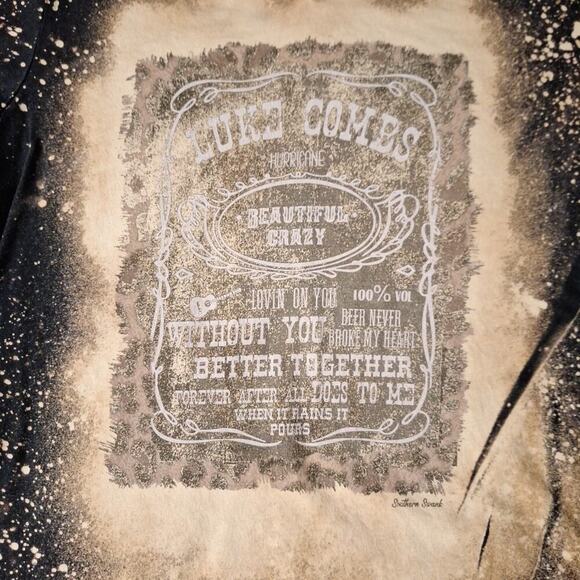 LUKE COMES
HURRICANE
BEAUTIFUL
CRAZY
LOVIN' ON YOU 100% VOL
WITHOUT YOU BEER NEVER
BROKE MY HEART
BETTER TOGETHER
FOREVER AFTER ALL DOES TO ME
WHEN IT RAINS IT
POURS
Southern Swank